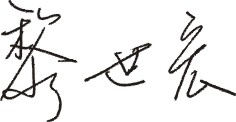 黎世宸